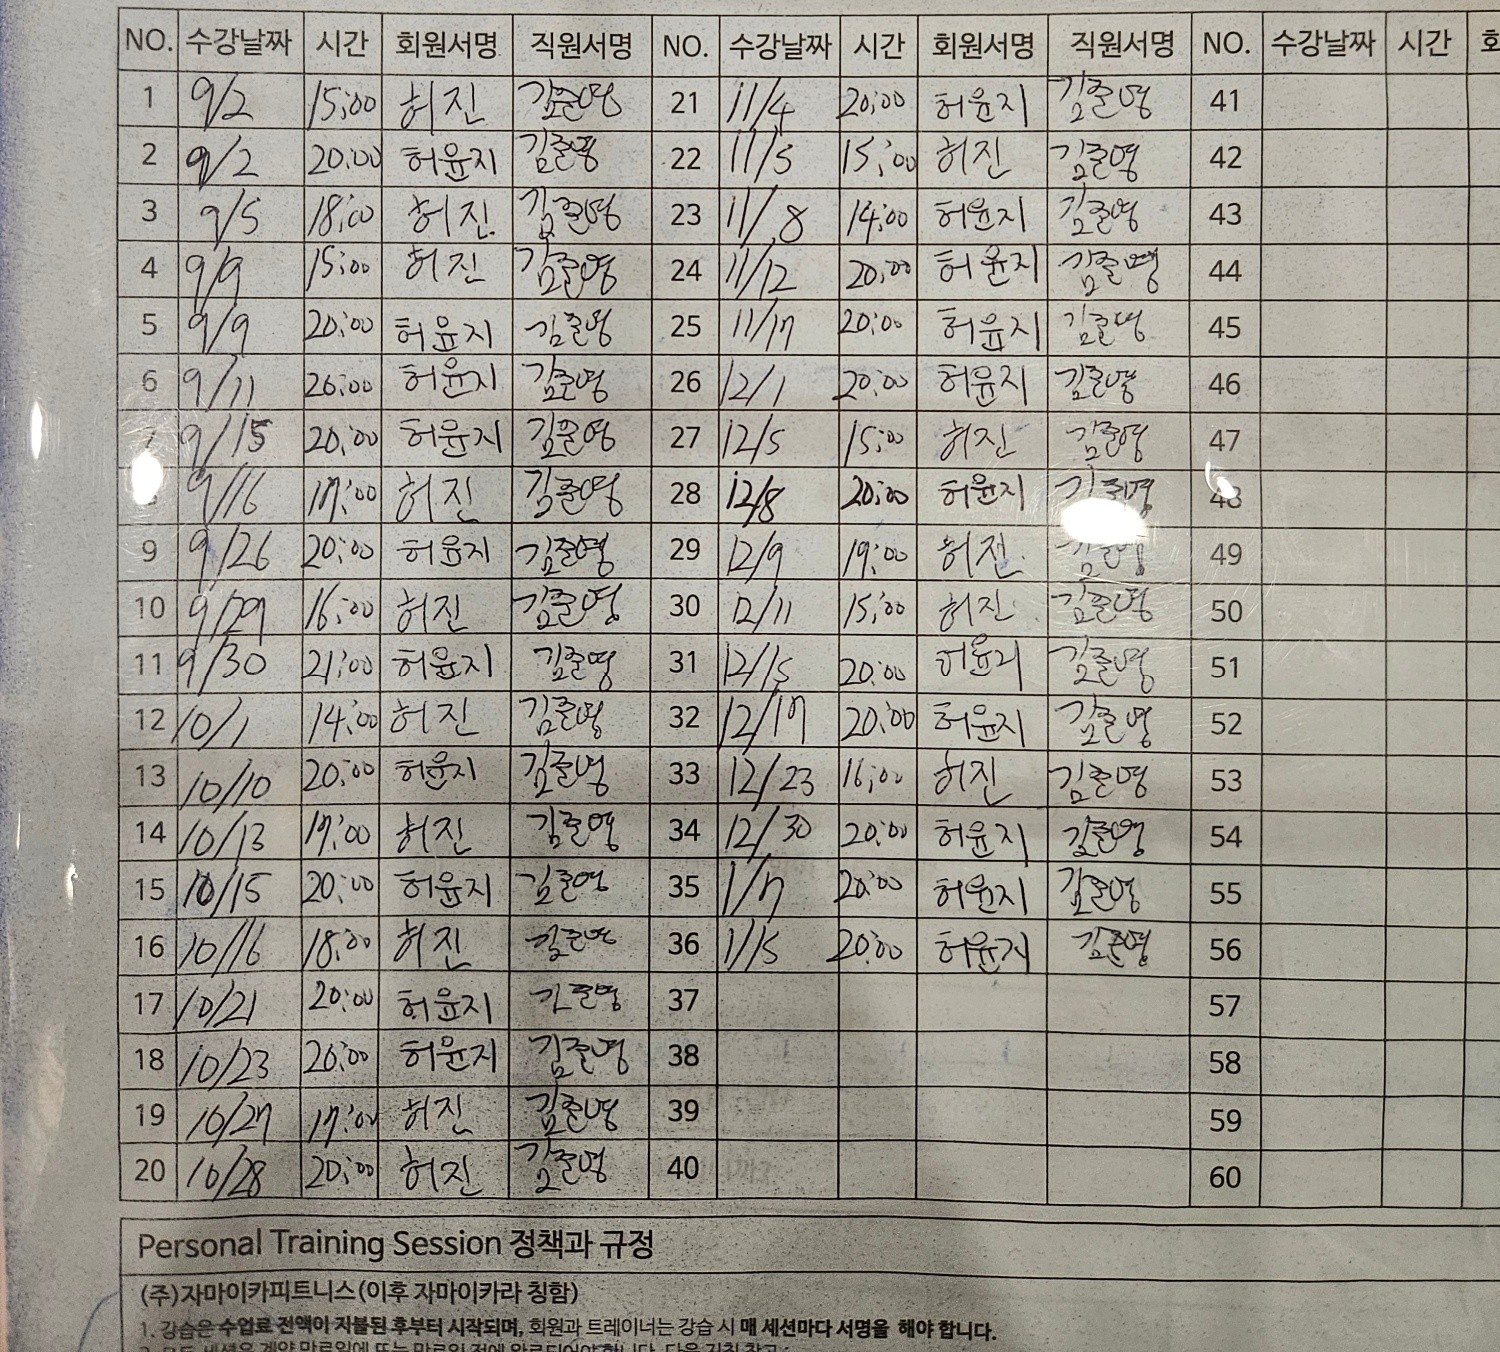 NO. 수강날짜 시간 회원서명 직원서명 NO. 수강날짜 시간 회원서명 직원서명 NO. 수강날짜 시간
1 9/2 15:00 허진 김준영 21 11/4 20:00 허윤지 김준영 41
2 9/2 20:00 허윤지 김준영 22 11/5 15:00 허진 김준영 42
3 9/5 18:00 허진 김준영 23 11/8 14:00 허윤지 김준영 43
4 9/9 15:00 허진 김준영 24 11/12 20:00 허윤지 김준영 44
5 9/9 20:00 허윤지 김준영 25 11/17 20:00 허윤지 김준영 45
6 9/11 20:00 허윤지 김준영 26 12/1 20:00 허윤지 김준영 46
9/15 20:00 허윤지 김준영 27 12/5 15:00 허진 김준영 47
9/16 17:00 허진 김준영 28 12/8 20:00 허윤지 김준영 48
9 9/26 20:00 허윤지 김준영 29 12/9 19:00 허진 김준영 49
10 9/29 16:00 허진 김준영 30 12/11 15:00 허진 김준영 50
11 9/30 21:00 허윤지 김준영 31 12/15 20:00 허윤지 김준영 51
12 10/1 14:00 허진 김준영 32 12/17 20:00 허윤지 김준영 52
13 10/10 20:00 허윤지 김준영 33 12/23 16:00 허진 김준영 53
14 10/13 17:00 허진 김준영 34 12/30 20:00 허윤지 김준영 54
15 10/15 20:00 허윤지 김준영 35 1/7 20:00 허윤지 김준영 55
16 10/16 18:00 허진 김준영 36 1/15 20:00 허윤지 김준영 56
17 10/21 20:00 허윤지 김준영 37 57
18 10/23 20:00 허윤지 김준영 38 58
19 10/27 17:00 허진 김준영 39 59
20 10/28 20:00 허진 김준영 40 60
Personal Training Session 정책과 규정
(주)자마이카피트니스(이후 자마이카라 칭함)
1. 강습은 수업료 전액이 지불된 후부터 시작되며, 회원과 트레이너는 강습 시 매 세션마다 서명을 해야 합니다.